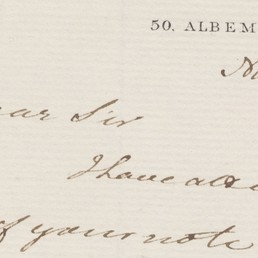 50, ALBEM
ear Sir
I have
of your note